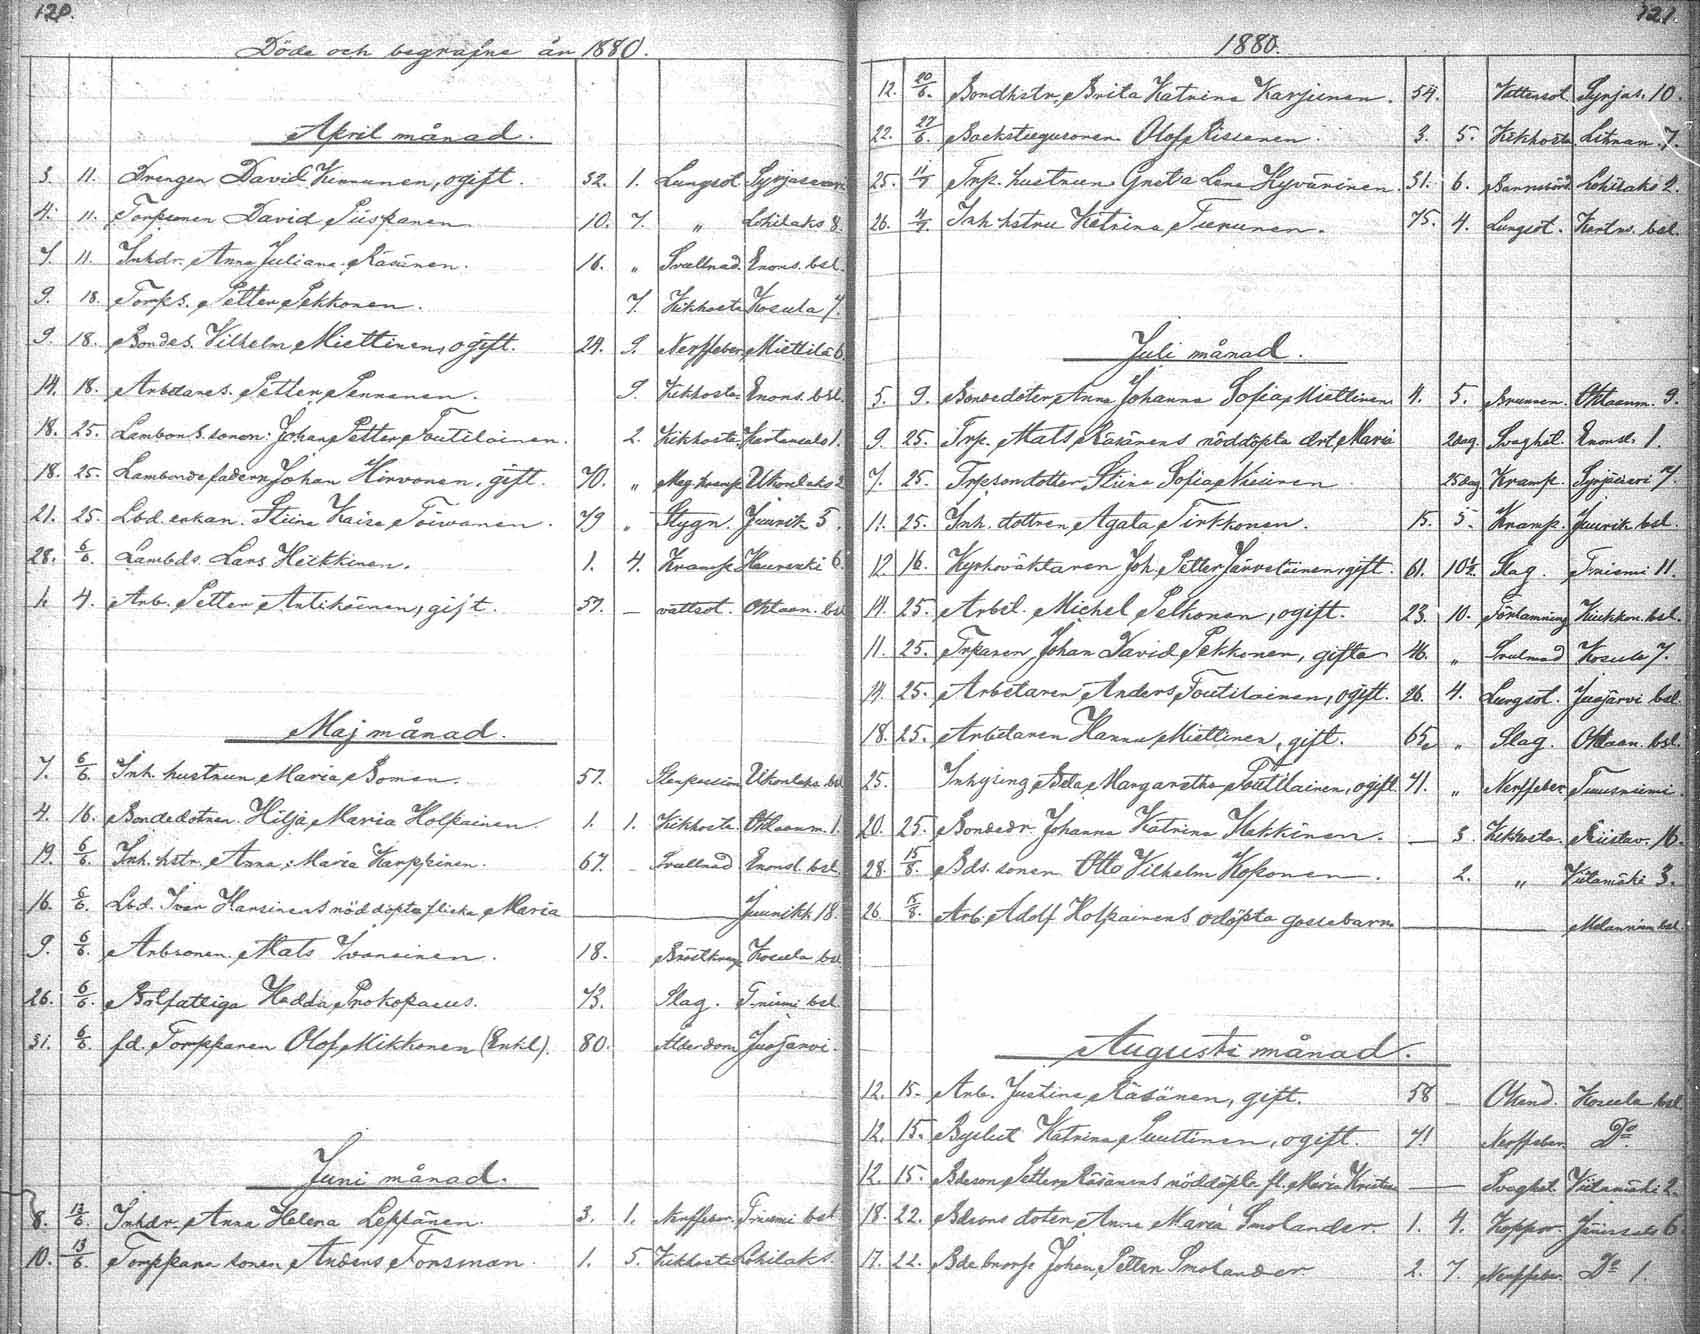 120.
Döde och begrafne år 1880.
April månad.
3. 11. Drengen David Kinnunen, ogift. 32. 1. Lungsot
4. 11. Torpsonen David Piispanen 10. 7. " Lohilaks 8.
7. 11. Inhdr. Anna Juliana Räsänen. 16. " Svullnad. Enons. bsl.
9. 18. Torps. Petter Pekkonen. 7. Kikhosta Kosula 7.
9. 18. Bondes. Vilhelm Miettinen, ogift. 24. 9. Nerffeber Miettilä 6.
14. 18. Arbetares. Petter Pennanen. 9. Kikhosta Enons. bsl.
18. 25. Petter Toutilainen. 2. Kikhosta 1.
18. 25. Johan Hirvonen, gift. 70. " Ukonlaks 2
21. 25. Lbd. enkan. Stiina Kaisa Toivanen. 79 " Stygn. Juurik 5.
28. 6/6 Lambds. Lars Heikkinen. 1. 4. Kramp 6.
1. 4. Arb. Petter Antikainen, gift. 57. — vattsot. Ohtaan. bsl
Maj månad.
7. 6/6. Inh. hustrun Maria Boman. 57. Ukonlaks bsl
4. 16. Bondedotren Hilja Maria Holpainen. 1. 1. Kikhosta Ohtaanm. 1.
19. 6/6 Inh. hstr. Anna Maria Karppinen. 67. – Svullnad Enonsl. bsl.
16. 6/6. Lbd. Ivar Hansinens nöddöpta flicka Maria — Juurikk 18.
9. 6/6 Arbsonen Mats Ivansinen. 18. Kosula bsl
26. 6/6. Hedda Prokopaeus. 73. Slag. T-niemi bsl.
31. 6/6. fd. Torpparen Olof Mikkonen (Enkl). 80. Ålderdom Juojärvi.
Juni månad.
8. 13/6. Inhdr. Anna Helena Leppänen. 3. 1. Nerffeber. T-niemi bsl
10. 13/6 Torppare sonen Anders Forsman. 1. 5. Kikhosta Lohilaks.
121.
1880.
12. 20/6. Bondhstr. Brita Katrina Karjunen. 54. Vattensot Syrjäs. 10.
22. 27/6. Olof Rissanen. 3. 5. Kikhosta 7.
25. 11/7 Trp. hustrun Greta Lena Hyvärinen. 31. 6. Barnsäng Lohilaks 2.
26. 4/7 Inh hstru Katrina Turunen. 75. 4. Lungsot. bsl.
Juli månad.
5. 9. Bondedoter Anna Johanna Sofia Miettinen 4. 5. Ohtaanm. 9.
9. 25. Trp. Mats Räsänens nöddöpta dot. Maria 2dag. Svaghet. Enonsl. 1.
7. 25. Trpsondotter Stina Sofia 25dag Kramp. 7.
11. 25. Inh. dottren Agata Tirkkonen. 15. 5. Kramp. Juurik bsl.
12. 16. Kyrkoväktaren Joh. Petter Järveläinen, gift. 61. 10½. Slag. T-niemi 11.
14. 25. Arbil. Michel Pelkonen, ogift. 23. 10. Förlamning bsl.
11. 25. Trparen Johan David Pekkonen, gifta 46. " Svulnad Kosula 7.
14. 25. Arbetaren Anders Toutilainen, ogift. 26. 4. Lungsot. Juojärvi bsl.
18. 25. Arbetaren Hannu Miettinen, gift. 65 " Slag. Ohtaan. bsl.
25. Inhysing Beta Margaretha Toutilainen, ogift 41. " Nerffeber Tuusniemi.
20. 25. Bondedr. Johanna Katrina Hakkinen. — 3. Kikhosta. 16.
28. 15/8. Bds. sonen Otto Vilhelm Koponen. 2. " Viitamäki 3.
26. 15/8. Arb. Adolf Holpainens odöpta gossebarn — bsl.
Augusti månad.
12. 15. Arb. Justina Räsänen, gift. 58 — Okänd. Kosula bsl
12. 15. Katrina Puustinen, ogift. 41 Nerffeber Do.
12. 15. Bdeson Petter Räsänens nöddöpta fl. Maria Kristina — Svaghet. Viitamäki 2.
18. 22. Bdesons doter Anna Maria Smolander 1. 4. Koppor. 6
17. 22. Johan Petter Smolander 2. 7. Nerffeber. Do 1.